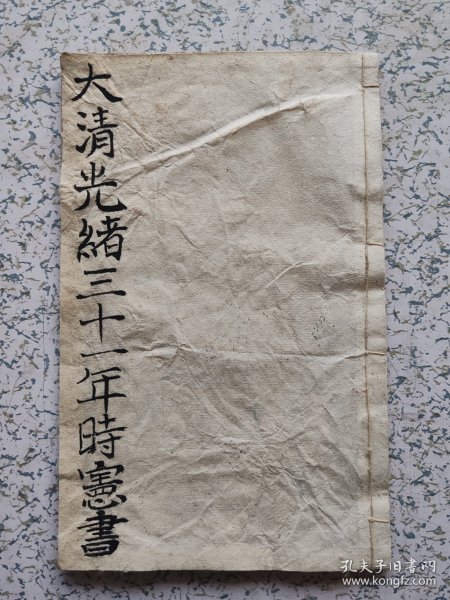 大清光緒三十一年時憲書
孔夫子旧书网
www.kongfz.com